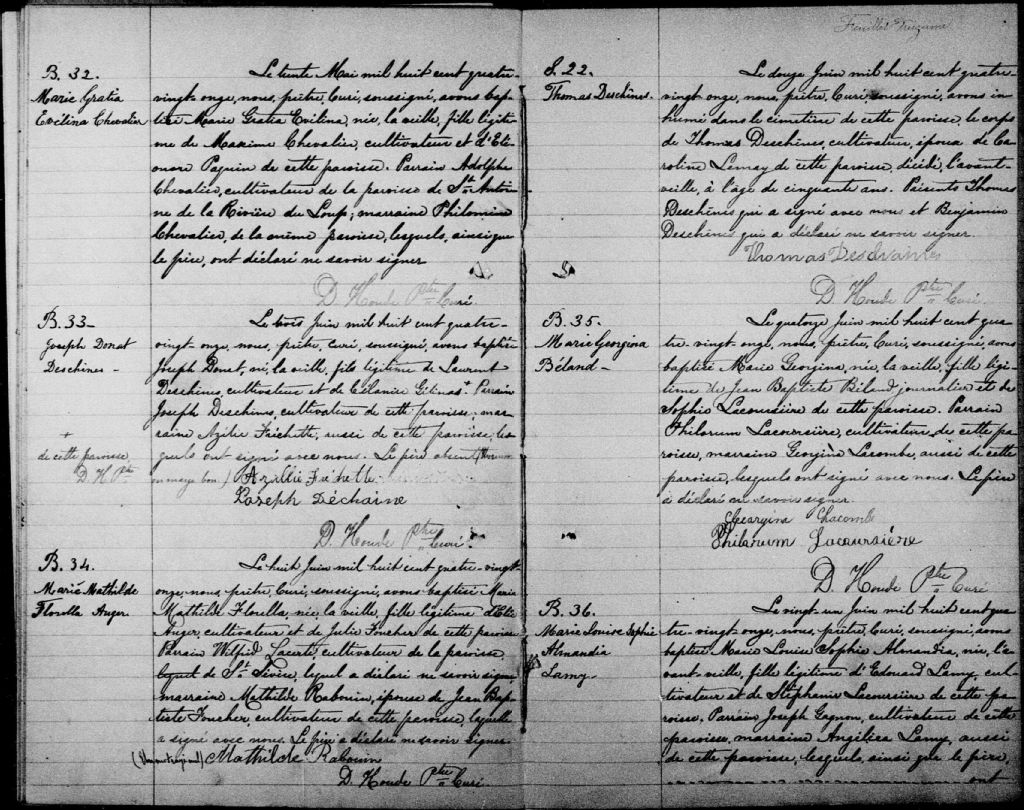 B. 32.
Marie Gratia
Evélina Chevalier
Le trente Mai mil huit cent quatre-
vingt-onze, nous, prêtre, Curé, soussigné, avons bap-
tisé Marie Gratia Evélina, née, la veille, fille légiti-
me de Maxime Chevalier, cultivateur et d'Elé-
onore Paquin de cette paroisse. Parrain Adolphe
Chevalier, cultivateur de la paroisse de St. Antoi-
ne de la Rivière du Loup; marraine Philomène
Chevalier, de la même paroisse, lesquels, ainsi que
le père, ont déclaré ne savoir signer
D. Houde Ptre Curé.
B. 33-
Joseph Donat
Deschênes -
+
de cette paroisse,
D. H. Ptre
Le trois Juin mil huit cent quatre-
vingt-onze, nous, prêtre, curé, soussigné, avons baptisé
Joseph Donat, né, la veille, fils légitime de Laurent
Deschênes, cultivateur et de Célanire Gélinas + Parrain
Joseph Deschênes, cultivateur de cette paroisse; mar-
raine Azilie Fréchette, aussi de cette paroisse, les-
quels ont signé avec nous. Le père absent
en marge bon.) Azillie Fréchette
Joseph Déchaine
D. Houde Ptre Curé.
B. 34.
Marie Mathilde
Florella Auger
Le huit Juin mil huit cent quatre-vingt-
onze, nous, prêtre, Curé, soussigné, avons baptisé Marie
Mathilde Florella, née, la veille, fille légitime d'Elie
Auger, cultivateur et de Julie Foucher de cette paroisse
Parrain Wilfrid Lacerte, cultivateur de la paroisse
de St. Sévère, lequel a déclaré ne savoir signer
marraine Mathilde Rabouin, épouse de Jean Bap-
tiste Foucher, cultivateur de cette paroisse, laquelle
a signé avec nous. Le père a déclaré ne savoir signer.
Mathilde Raboum
D. Houde Ptre Curé
Feuillet Onzième
S. 22.
Thomas Deschênes.
Le douze Juin mil huit cent quatre-
vingt-onze, nous, prêtre, Curé, soussigné, avons in-
humé dans le cimetière de cette paroisse, le corps
de Thomas Deschênes, cultivateur, époux de Ca-
roline Lemay de cette paroisse, décédé, l'avant-
veille, à l'âge de cinquante ans. Présents Thomas
Deschênes qui a signé avec nous et Benjamin
Deschênes qui a déclaré ne savoir signer.
Thomas
D. Houde Ptre Curé.
B. 35.
Marie Georgina
Béland-
Le quatorze Juin mil huit cent qua-
tre-vingt-onze, nous, prêtre, Curé, soussigné, avons
baptisé Marie Georgina, née, la veille, fille légi-
time de Jean Baptiste Béland, journalier et de
Sophie Lacoursière de cette paroisse. Parrain
Philorum Lacoursière, cultivateur, de cette pa-
roisse, marraine Georgina Lacombe, aussi de cette
paroisse, lesquels ont signé avec nous. Le père
a déclaré ne savoir signer.
Georgina Lacombe
Philorum Lacoursière
D. Houde Ptre Curé
B. 36.
Marie Louise Sophie
Almandia
Lamy-
Le vingt-un Juin mil huit cent qua-
tre-vingt-onze, nous, prêtre, Curé, soussigné, avons
baptisé Marie Louise Sophie Almandia, née, l'a-
vant-veille, fille légitime d'Edouard Lamy, cul-
tivateur et de Stéphanie Lacoursière de cette pa-
roisse, Parrain Joseph Gagnon, cultivateur de cette
paroisse, marraine Angélica Lamy, aussi
de cette paroisse, lesquels, ainsi que le père,
ont